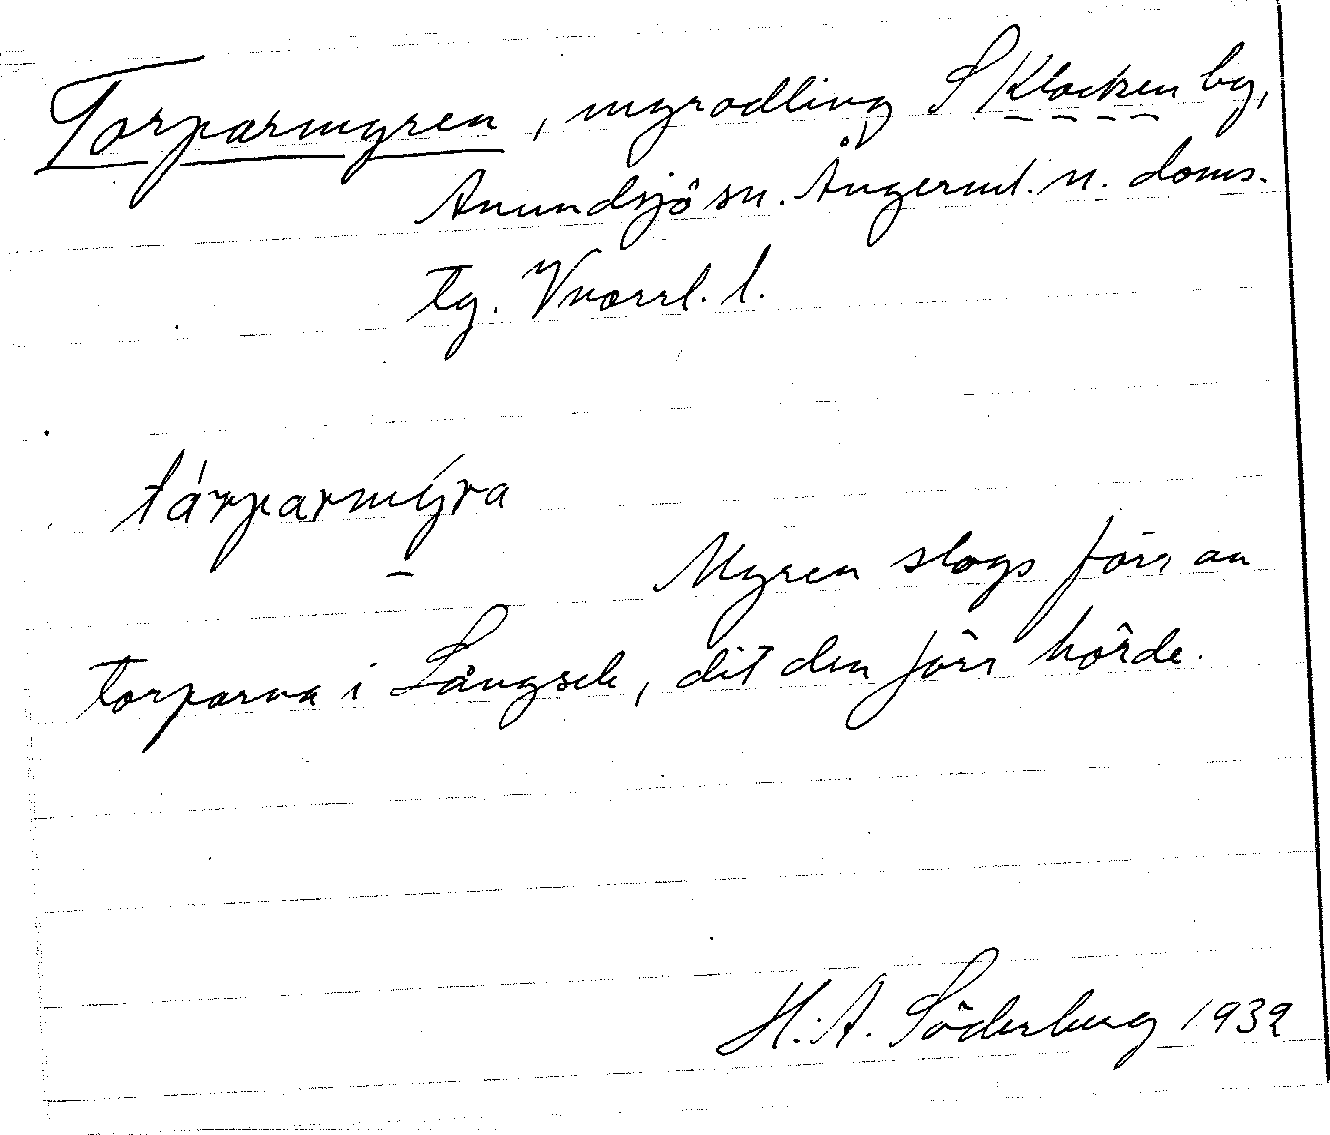 Torparmyren, myrodling S Klocken by,
Anundsjö sn. Ångerml. n. doms.
tg. Vnorrl. l.
tárparmýra
Myren slogs förr av
torparna i Långsele, dit den förr hörde.
H. A. Söderberg 1932